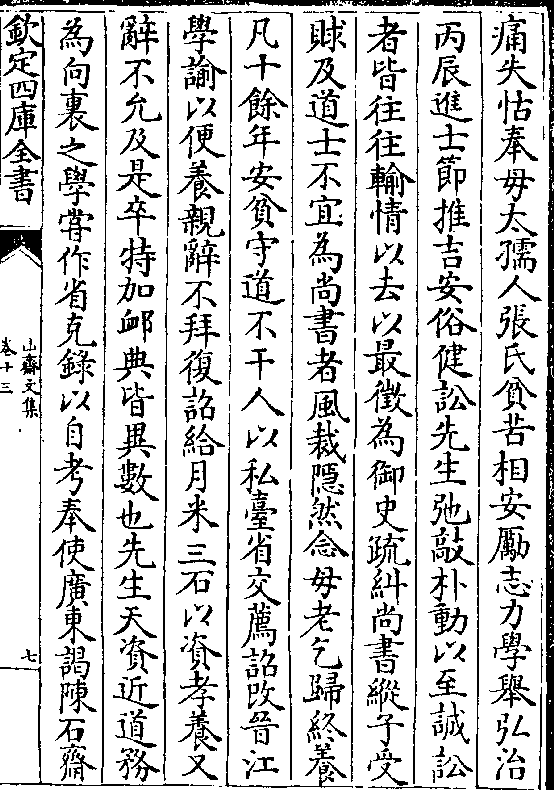 痛失怙奉母太孺人張氏貧苦相安勵志力學舉弘治
丙辰進士節推吉安俗健訟先生弛敲朴動以至誠訟
者皆往往輸情以去以最徵為御史疏糾尚書縱子受
賕及道士不宜為尚書者風裁隱然念母老乞歸終養
凡十餘年安貧守道不干人以私臺省交薦詔改晉江
學諭以便養親辭不拜復詔給月米三石以資孝養又
辭不允及是卒特加䘏典皆異數也先生天資近道務
為向裏之學嘗作省克錄以自考奉使廣東謁陳石齋
欽定四庫全書
山齋文集
卷十三
七